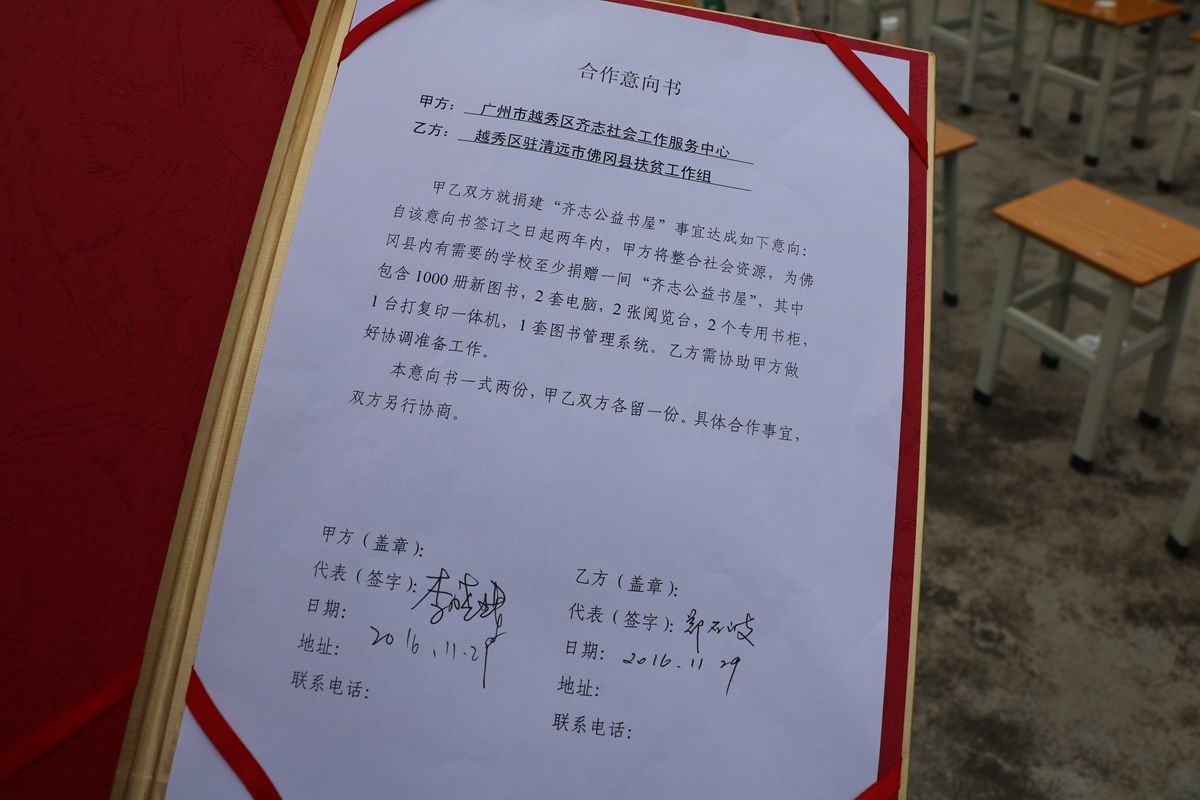 合作意向书
甲方：广州市越秀区齐志社会工作服务中心
乙方：越秀区驻清远市佛冈县扶贫工作组
甲乙双方就捐建“齐志公益书屋”事宜达成如下意向：
自该意向书签订之日起两年内，甲方将整合社会资源，为佛
冈县内有需要的学校至少捐赠一间“齐志公益书屋”，其中
包含1000册新图书，2套电脑，2张阅览台，2个专用书柜，
1台打复印一体机，1套图书管理系统。乙方需协助甲方做
好协调准备工作。
本意向书一式两份，甲乙双方各留一份。具体合作事宜，
双方另行协商。
甲方（盖章）：
代表（签字）：李
日期：2016.11.29
地址：
联系电话：
乙方（盖章）：
代表（签字）：郑
日期：2016.11 29
地址：
联系电话：